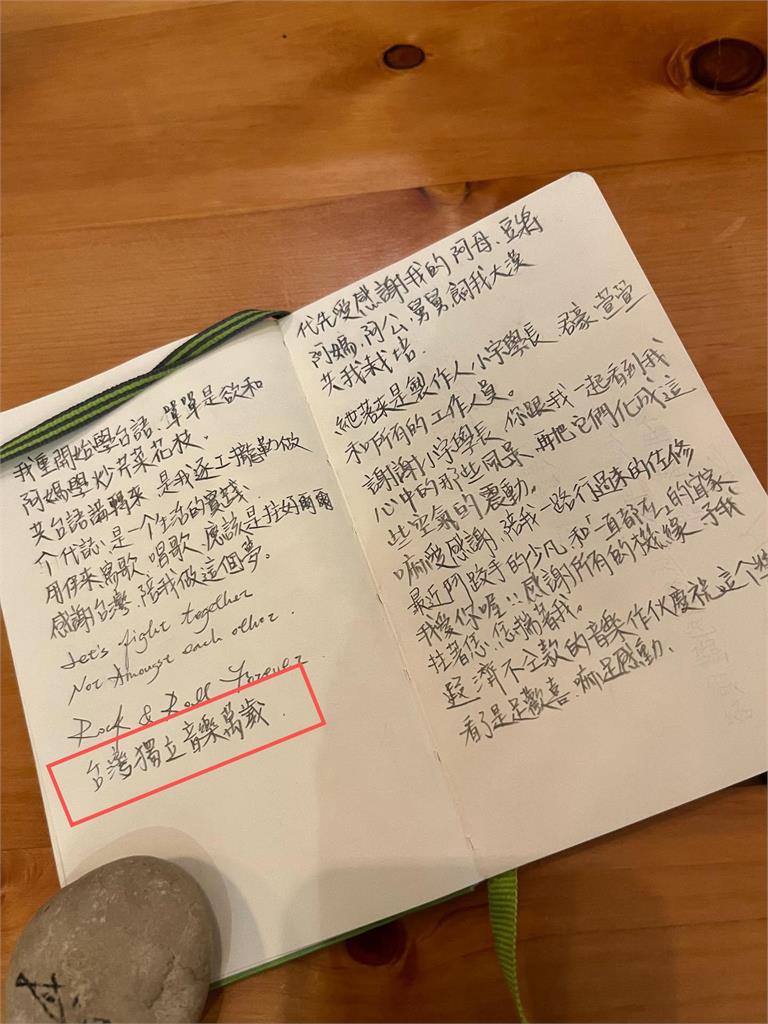 我重開始學台語、單單是欲和
阿媽學炒芹菜花枝。
共台語講轉來 是我逐工攏勤做
个代誌、是一个生活的實踐、
用伊來寫歌、唱歌、應該是拄好爾爾
感謝台灣、陪我做這個夢。
Let's fight together
Not Amongst each other.
Rock & Roll Forever
台灣獨立音樂萬歲.
代先愛感謝我的阿母、豆
阿媽、阿公、舅舅 飼我大漢
共我栽培.
紲落來是製作人小宇學長 君豪 萱萱
和所有的工作人員。
謝謝小宇學長 你跟我一起看到我
心中的那些風景、再把它們化成這
些空氣的震動。
嘛愛感謝、陪我一路行過來的佐修
最近鬥跤手的少凡 和一直都在的宜家
我愛你喔!! 感謝所有的機緣 予我
拄著您、您揣著我。
遐濟不仝款的音樂作伙慶祝這个獎
看了是足歡喜、嘛足感動.